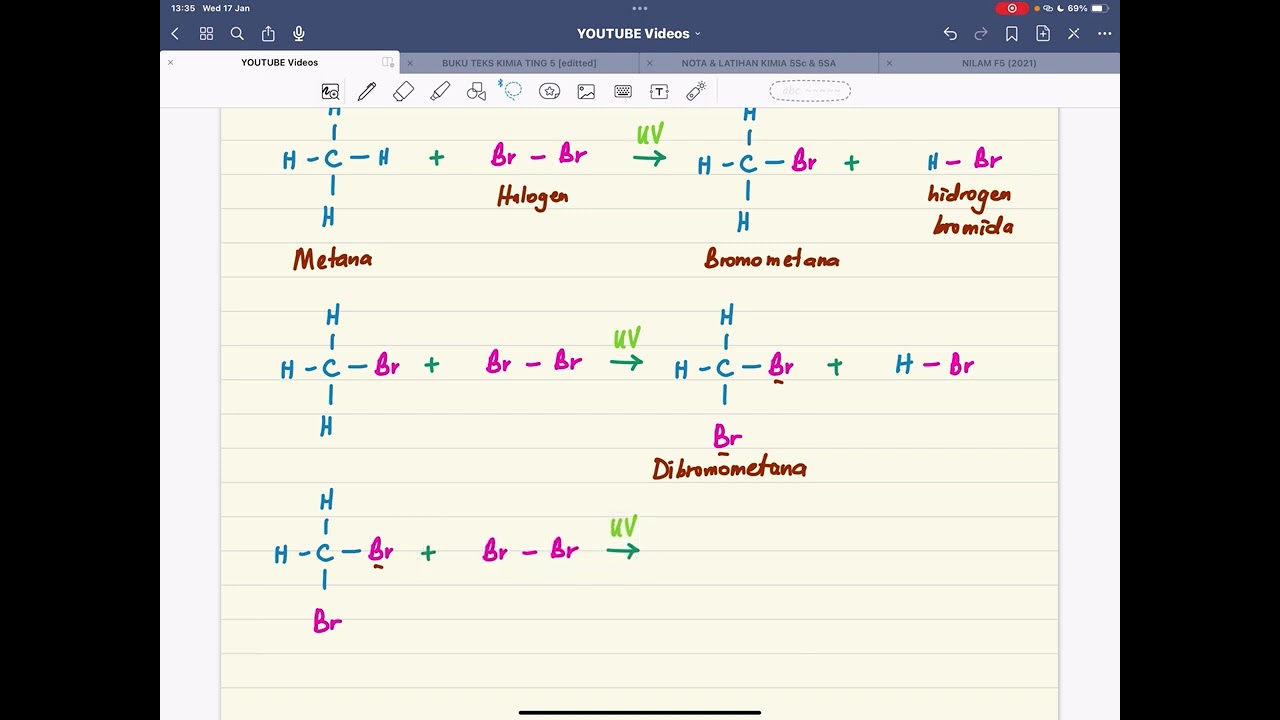 13:35 Wed 17 Jan
69%
YOUTUBE Videos
YOUTUBE Videos
BUKU TEKS KIMIA TING 5 [editted]
NOTA & LATIHAN KIMIA 5Sc & 5SA
NILAM F5 (2021)
abc
H H
UV
H - C - H + Br - Br → H - C - Br + H - Br
Halogen hidrogen
H H bromida
Metana Bromometana
H H
UV
H - C - Br + Br - Br → H - C - Br + H - Br
H Br
Dibromometana
H
UV
H - C - Br + Br - Br →
Br